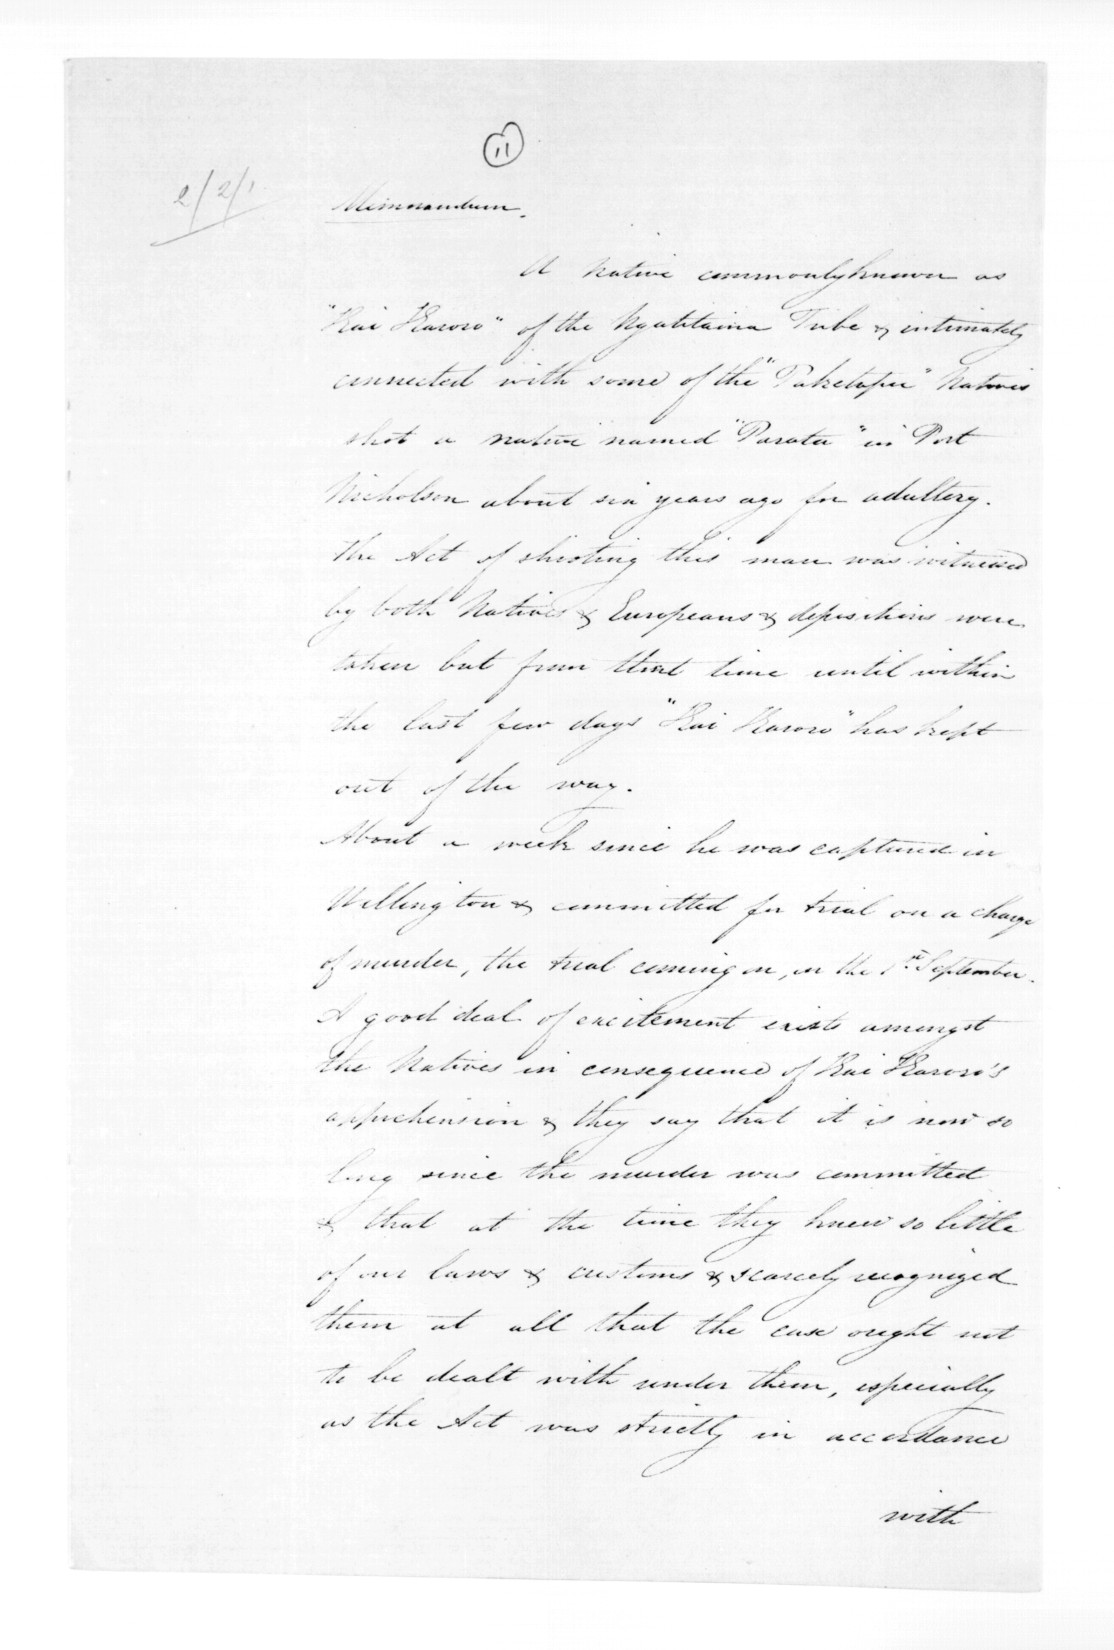 11
2/2/1
Memorandum.
A Native commonly known as
"Kai Karoro" of the Ngatitaina Tribe & intimately
connected with some of the "Paketapu" Natives
shot a native named "Parata" in Port
Nicholson about six years ago for adultery.
The Act of shooting this man was witnessed
by both Natives & Europeans & depositions were
taken but from that time until within
the last few days "Kai Karoro" has kept
out of the way.
About a week since he was captured in
Wellington & committed for trial on a charge
of murder, the trial coming on, on the 1st September.
A good deal of excitement exists amongst
the Natives in consequence of Kai Karoro's
apprehension & they say that it is now so
long since the murder was committed
& that at the time they knew so little
of our laws & customs & scarcely recognized
them at all that the case ought not
to be dealt with under them, especially
as the Act was strictly in accordance
with